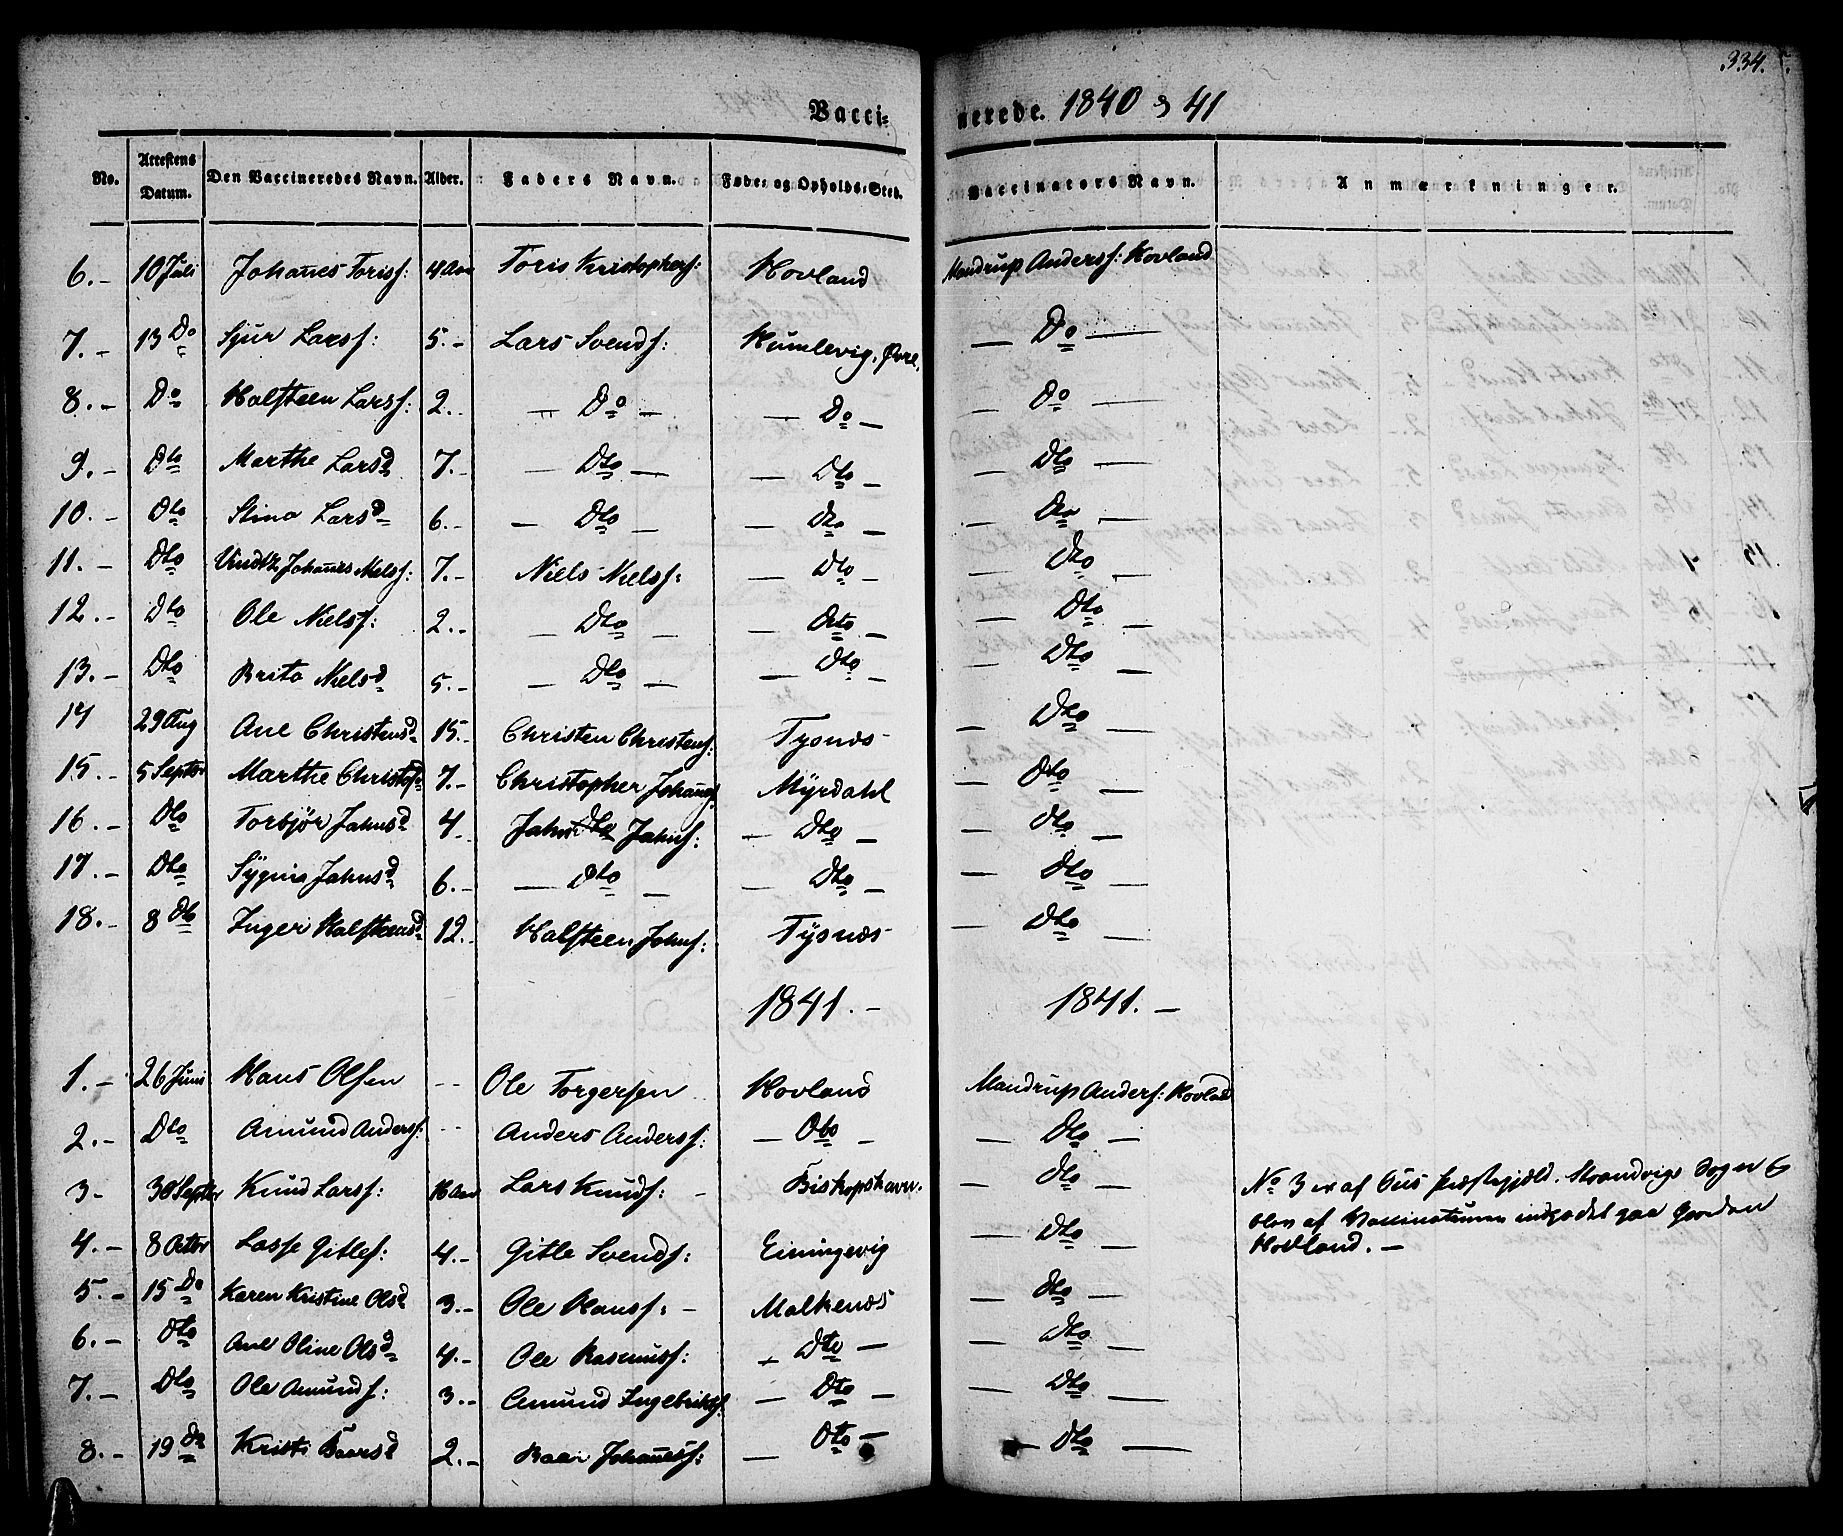 334.
Vaccinerede. 1840 & 41
No. Attestens Datum. Den Vaccineredes Navn. Alder. Faders Navn. Føde- og Opholds-Sted. Vaccinators Navn. Anmærkninger.
6.- 10 Juli Johañes Torisf: 4 Aar Toris Kristophersf: Hovland Mandrup Andersf: Hovland
7.- 13 Do Sjur Larsf: 5.- Lars Svendsf: Humlevig, Øvre. — Do —
8.- Do Halsteen Larsf: 2.- — Do — — Do — — Do —
9.- Dto Marthe Larsd 7.- — Dto — — Dto — — Dto —
10.- Dto Stina Larsd 6.- — Dto — — Dto — — Dto —
11.- Dto Johañes Nielsf: 7.- Niels Nielsf: — Dto — Dto —
12.- Dto Ole Nielsf: 2.- — Dto — — Dto — — Dto —
13.- Dto Brita Nielsd 5.- — Dto — — Dto — — Dto —
14 29 Aug Ane Christensd 15.- Christen Christensf: Tysnæs — Dto —
15.- 5 Septbr Marthe Christofd 7.- Christopher Johañesf Myrdahl — Dto —
16.- Dto Torbjør Jahnsd 4.- Jahn Jahnsf: — Dto — — Dto —
17.- Dto Sÿgnia Jahnsd 6.- — Dto — — Dto — — Dto —
18.- 8 Dto Inger Halsteensd 12.- Halsteen Johnsf: Tÿsnæs — Dto —
1841.- 1841.—
1.- 26 Juni Hans Olsen -- Ole Torgersen Hovland Mandrup Andersf: Hovland
2.- Dto Amund Andersf: -- Anders Andersf: — Dto — — Dto —
3- 30 Septbr Knud Larsf: Lars Knudsf: - Biskopshavn. — Dto — No 3 er af Ous Præstegjæld. Strandvigs Sogn &
4.- 8 Octbr Lasse Gitlesf: 4.- Gitle Svendsf: Einingevig — Dto — blev af Vaccinateuren indpodet paa Gaarden
Hovland. —
5.- 15 Do Karen Kristine Olsd 3.- Ole Hansf: - Malkenæs — Dto —
6.- Dto Ane Oline Olsd 4.- Ole Rasmusf: — Dto — — Dto —
7.- Dto Ole Amundsf: 3.- Amund Ingebrigtsf. — Dto — — Dto —
8.- 19 Do Kristi Baarsd 2.- Baar Johañesf: — Dto — — Dto —